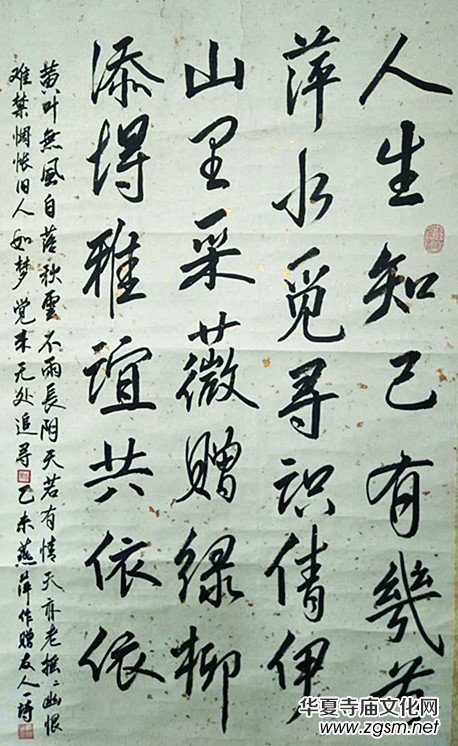 人生知己有幾
萍水觅寻识倩伊
山里采薇赠绿柳
添得雅谊共依依
黄叶無風自落秋雲不雨長阴天若有情天亦老摇〻幽恨
难禁惆怅旧人如梦觉来无处追寻 乙未燕萍作赠友人一诗
华夏寺庙文化网
www.zgsm.net